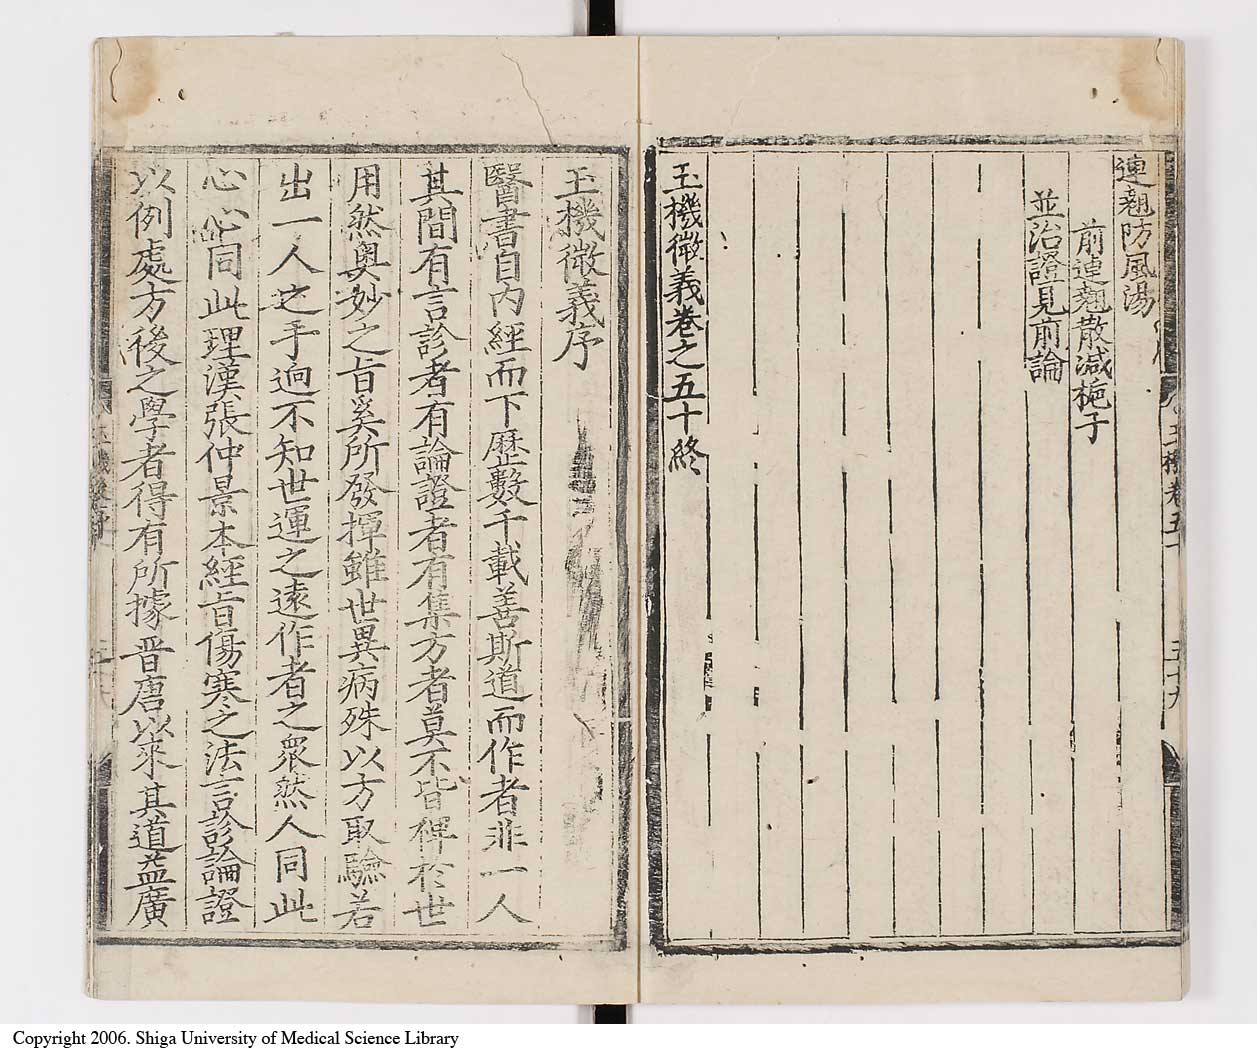 連翹防風湯
前連翹散減梔子
並治證見前論
玉機微義卷之五十終
玉機微義序
醫書自內經而下歷數千載善斯道而作者非一人
其間有言診者有論證者有集方者莫不皆稗於世
用然奧妙之旨奚所發揮雖世異病殊以方取驗若
出一人之手逈不知世運之遠作者之衆然人同此
心心同此理漢張仲景本經旨傷寒之法言診論證
以例處方後之學者得有所據晋唐以來其道益廣
Copyright 2006. Shiga University of Medical Science Library